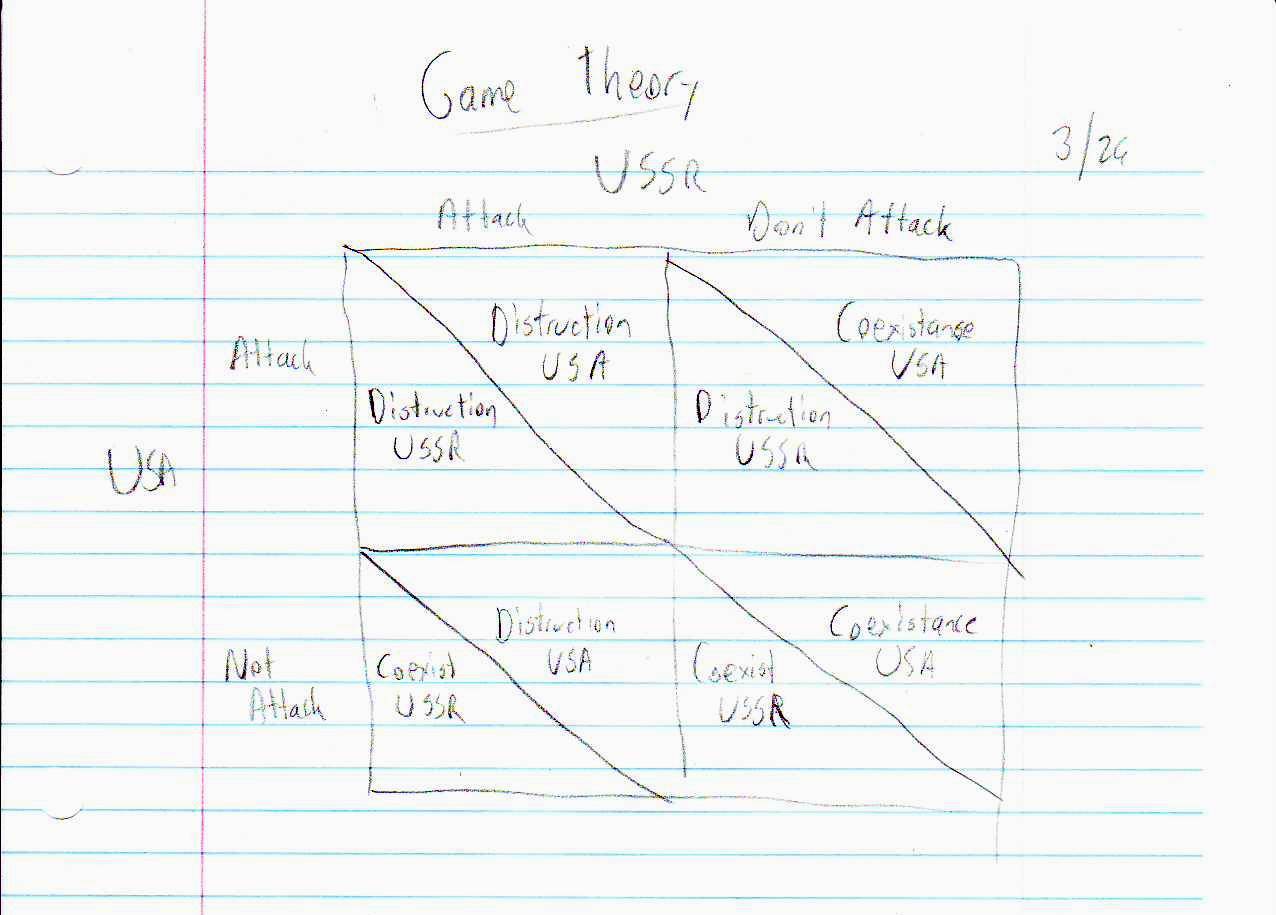 Game Theory
3/26
USSR
Attack Don't Attack
Distruction
USA
Coexistance
USA
Attack
Distruction
USSR
Distruction
USSR
USA
Distruction
USA
Coexistance
USA
Not
Attack
Coexist
USSR
Coexist
USSR